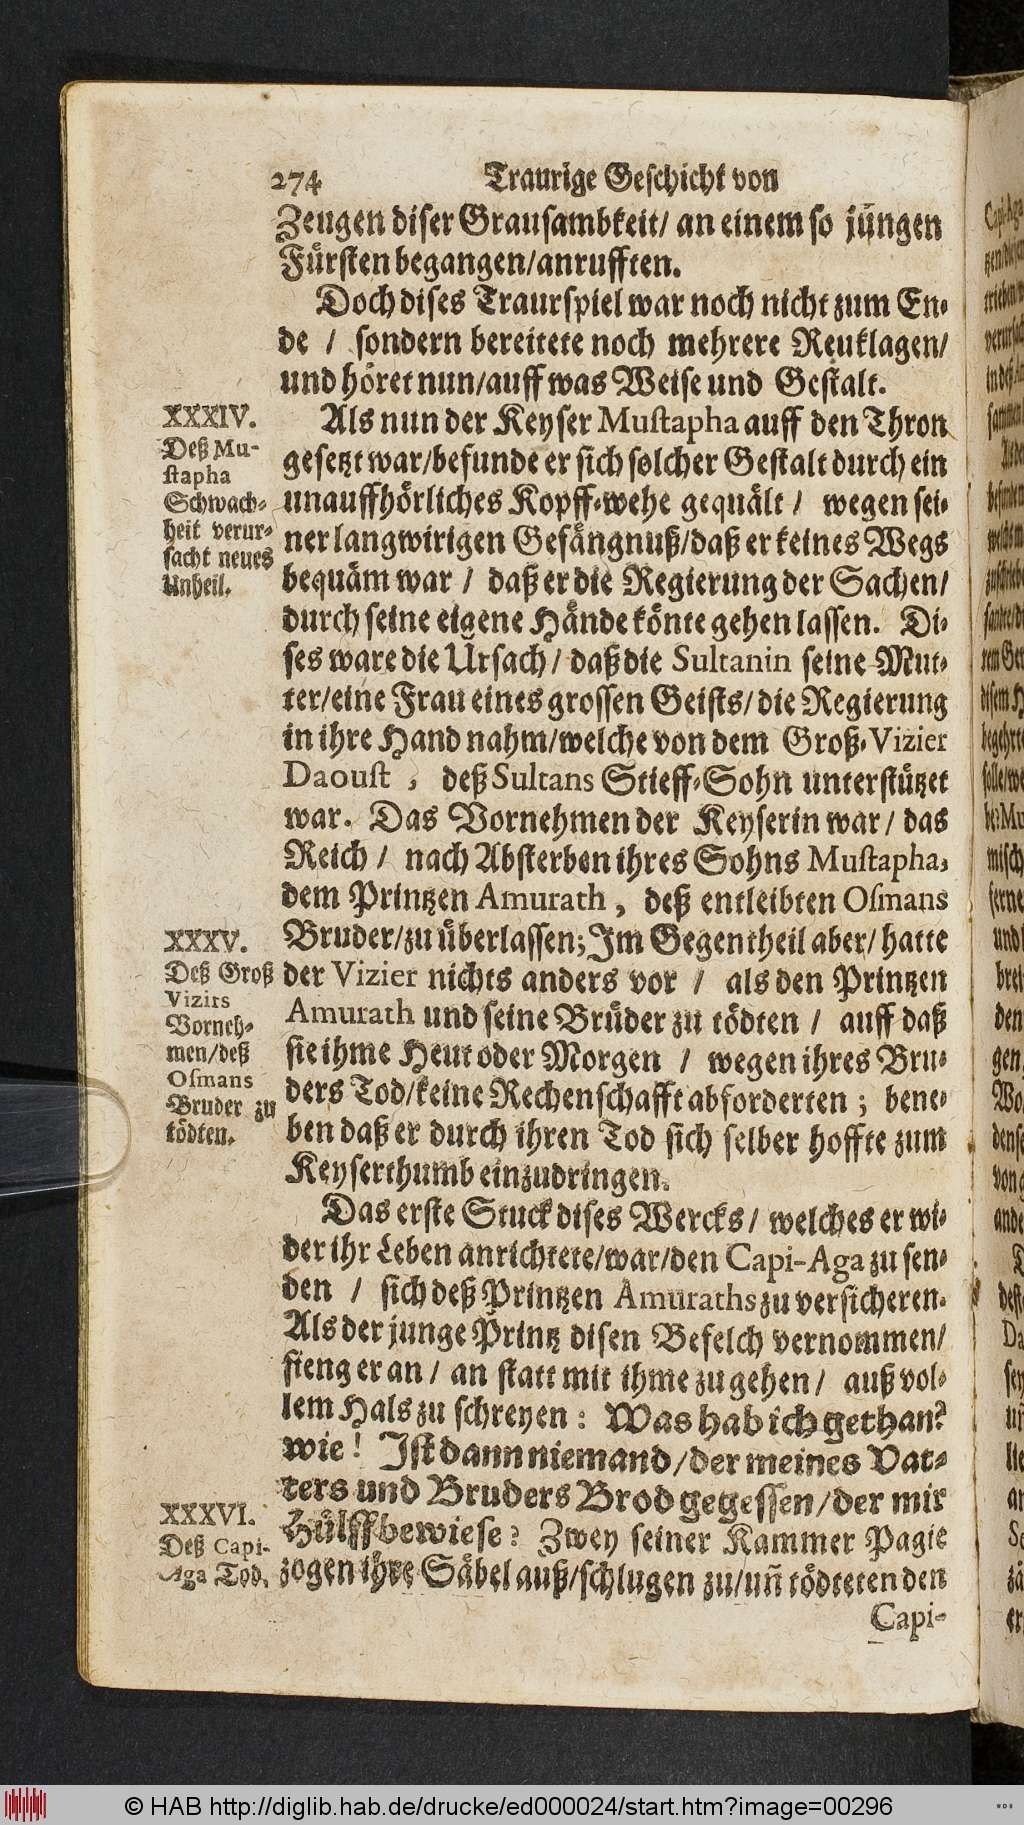 274 Traurige Geschicht von
Zeugen diser Grausambkeit/ an einem so jungen
Fürsten begangen/anrufften.
Doch dises Traurspiel war noch nicht zum En-
de / sondern bereitete noch mehrere Reuklagen/
und höret nun/auff was Weise und Gestalt.
XXXIV.
Deß Mu-
stapha
Schwach-
heit verur-
sacht neues
Unheil.
Als nun der Keyser Mustapha auff den Thron
gesetzt war/befunde er sich solcher Gestalt durch ein
unauffhörliches Kopff-wehe gequält / wegen sei-
ner langwirigen Gefängnuß/daß er keines Wegs
bequäm war / daß er die Regierung der Sachen/
durch seine eigene Hände könte gehen lassen. Di-
ses ware die Ursach/ daß die Sultanin seine Mut-
ter/eine Frau eines grossen Geists/ die Regierung
in ihre Hand nahm/welche von dem Groß-Vizier
Daoust , deß Sultans Stieff-Sohn unterstützet
war. Das Vornehmen der Keyserin war/ das
Reich / nach Absterben ihres Sohns Mustapha,
dem Printzen Amurath, deß entleibten Osmans
XXXV.
Deß Groß
Vizirs
Vorneh-
men/deß
Osmans
Bruder zu
tödten.
Bruder/zu überlassen; Im Gegentheil aber/ hatte
der Vizier nichts anders vor / als den Printzen
Amurath und seine Brüder zu tödten / auff daß
sie ihme Heut oder Morgen / wegen ihres Bru-
ders Tod/keine Rechenschafft abforderten; bene-
ben daß er durch ihren Tod sich selber hoffte zum
Keyserthumb einzudringen.
Das erste Stuck dises Wercks/ welches er wi-
der ihr Leben anrichtete/war/den Capi-Aga zu sen-
den / sich deß Printzen Amuraths zu versicheren.
Als der junge Printz disen Befelch vernommen/
fieng er an/ an statt mit ihme zu gehen/ auß vol-
lem Hals zu schreyen: Was hab ich gethan?
wie! Ist dann niemand/der meines Vat-
ters und Bruders Brod gegessen/der mir
XXXVI.
Deß Capi-
Aga Tod.
Hülff bewiese? Zwey seiner Kammer Pagie
zogen ihre Säbel auß/schlugen zu/uñ tödteten den
Capi-
© HAB http://diglib.hab.de/drucke/ed000024/start.htm?image=00296